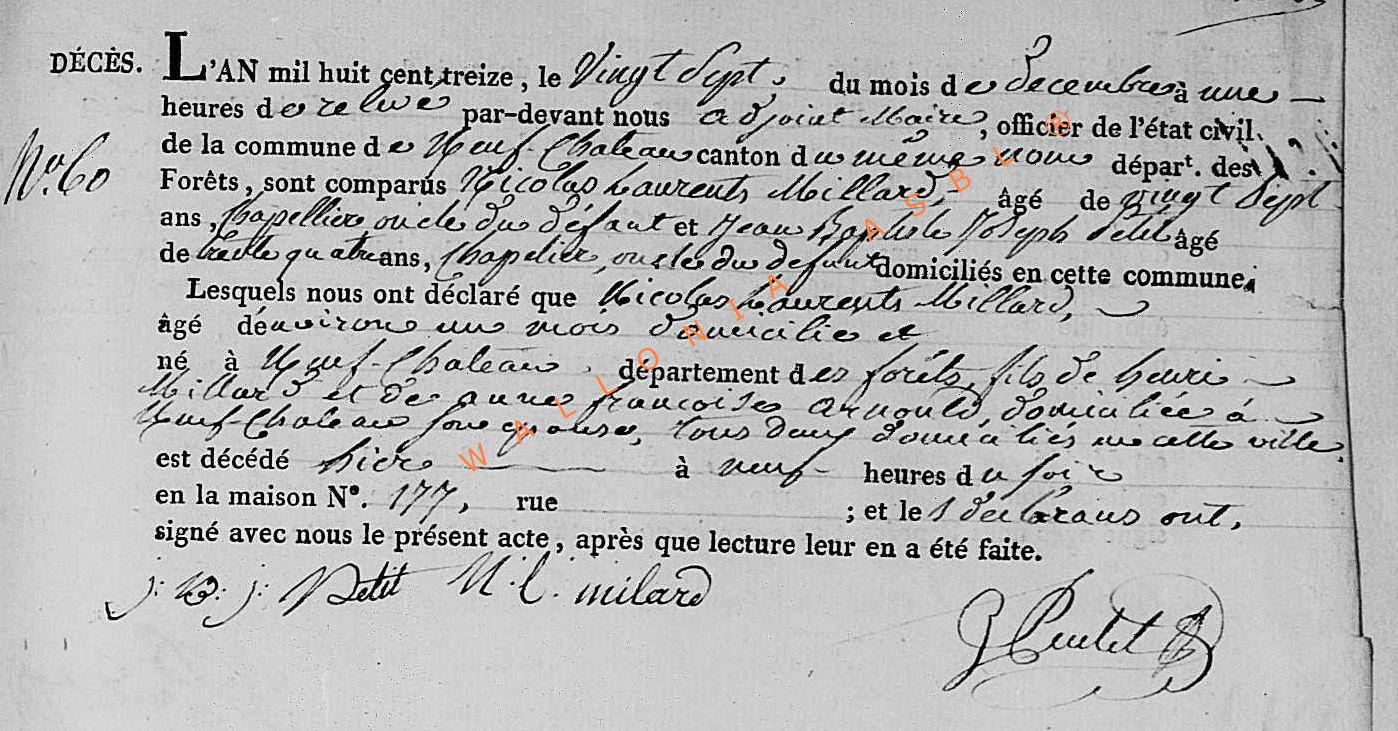 DÉCÈS. L'AN mil huit cent treize, le Vingt Sept, du mois de Decembre à une
heures de relevé par-devant nous adjoint Maire, officier de l'état civil
de la commune de Neuf-Chateau canton du même nom départ. des
No. 60
Forêts, sont comparus Nicolas Laurents Millard, âgé de vingt Sept
ans, Chapellier, oncle du défunt et Jean Baptiste Joseph Petit âgé
de trente quatre ans, Chapelier, oncle du defunt domiciliés en cette commune;
Lesquels nous ont déclaré que Nicolas Laurents Millard,
âgé d'environ un mois domicilié et
né à Neuf-Chateau, département des forêts, fils de henri
Millard et de anne françoise arnould, domiciliée à
Neuf-Chateau son epouse, tous deux domiciliés en cette ville
est décédé hier à neuf heures du soir
en la maison No. 177, rue ; et les déclarans ont,
signé avec nous le présent acte, après que lecture leur en a été faite.
j: B: j: Petit N. l. milard
WALLONIA ASBL ®